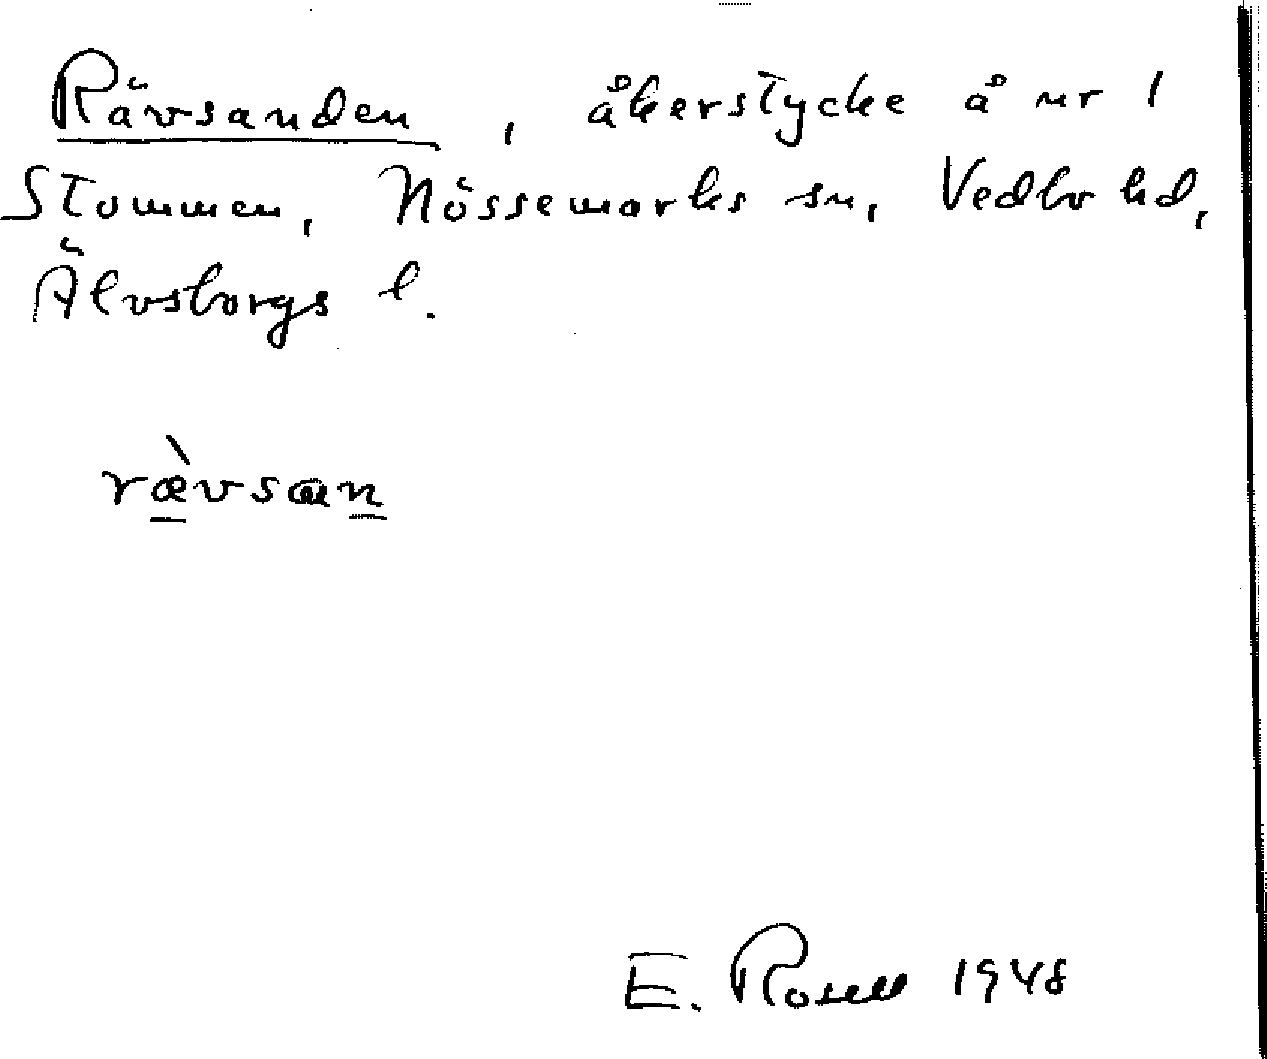 Rävsanden, åkerstycke å nr 1
Stommen, Nössemarks sn, Vedbo hd,
Älvsborgs l.
ræ̀vsan
E. Rosell 1948